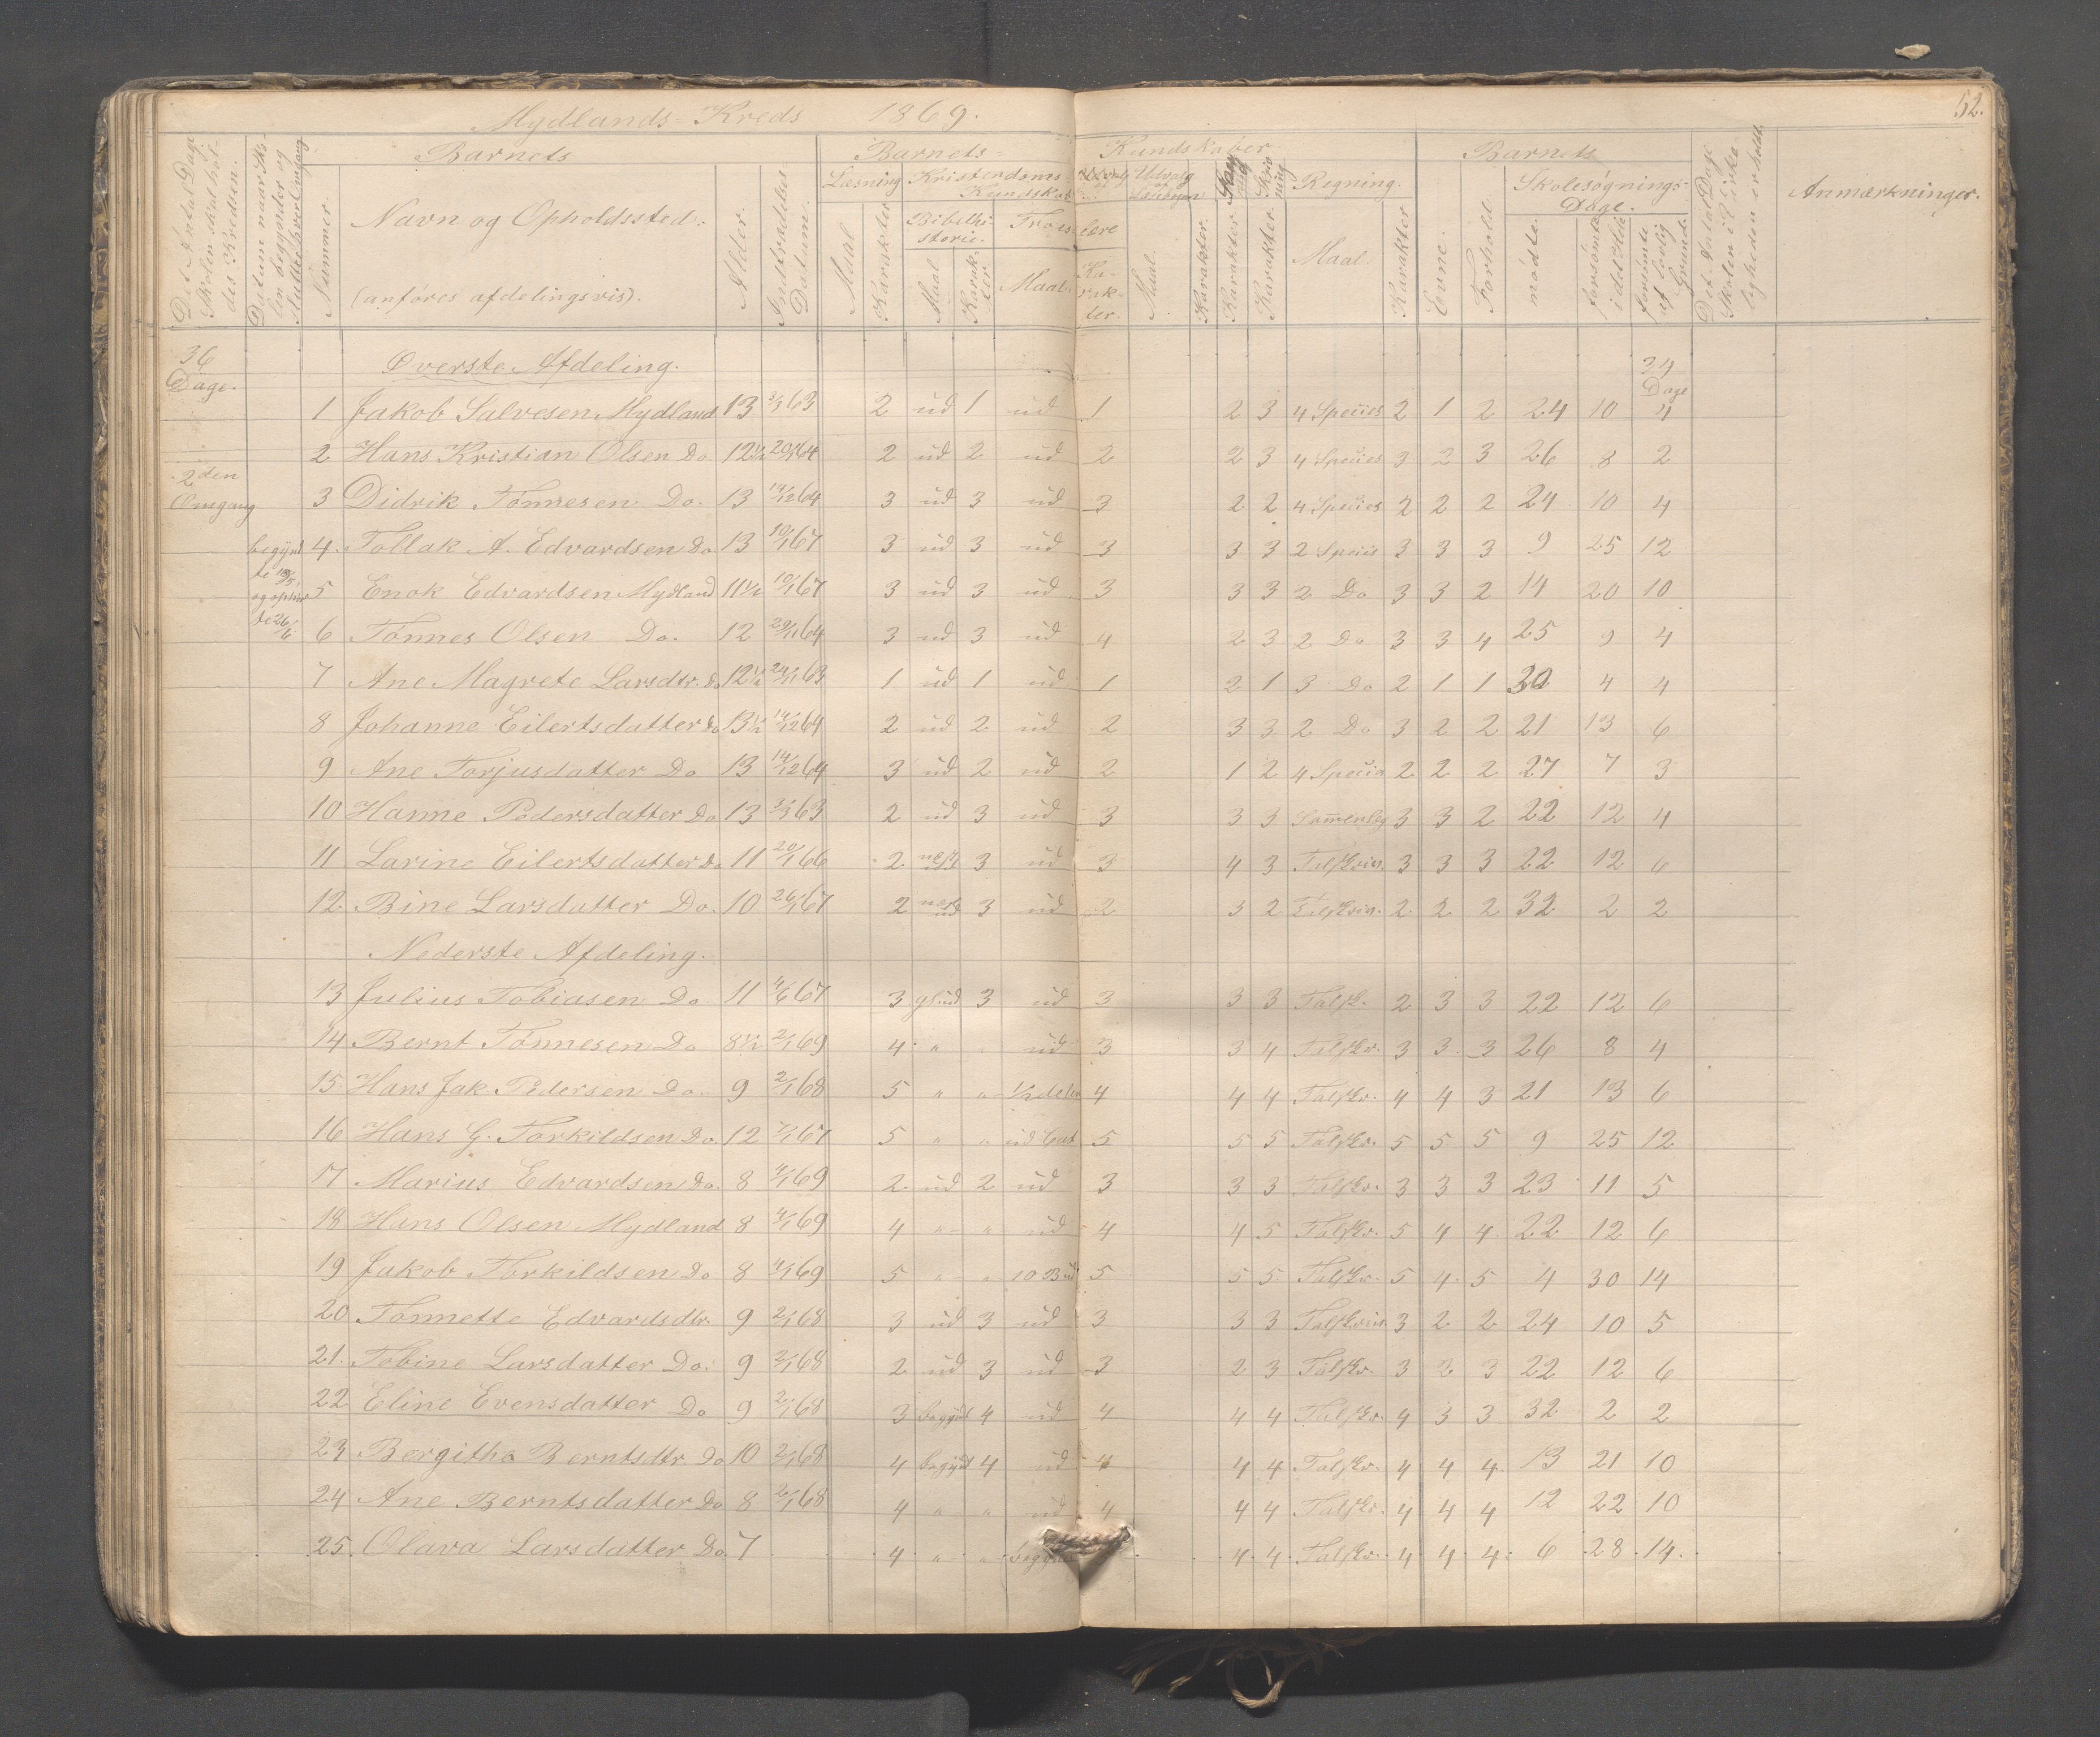 Mydlands-Kreds 1869.
52.
Det Antal Dage Skolen skal holdes i Kredsen.
Datum naar Skolen begynder og slutter hver Omgang.
Nummer.
Barnets
Navn og Opholdssted.
(anføres afdelingsvis).
Alder.
Indtrædelses Datum.
Barnets Kundskaber
Læsning
Maal
Karakter
Kristendoms-Kundskab
Bibelhistorie.
Maal
Karakter
Troeslære
Maal
Karakter.
Udvalg af Læsebogen
Maal.
Karakter.
Sang
Karakter
Skrivning
Karakter.
Regning.
Maal.
Karakter
Barnets
Evne.
Forhold.
Skolesøgnings-Dage.
mødte.
forsømte i det Hele
forsømte af lovlig Grund.
Det Antal Dage Skolen i Virkeligheden er holdt.
Anmærkninger.
36 Dage.
Øverste Afdeling.
34 Dage
1 Jakob Salvesen Mydland 13 63 2 ud 1 ud 1 2 3 4 Species 2 1 2 24 10 4
2 Hans Kristian Olsen Do 12½ 20/1 64 2 ud 2 ud 2 2 3 4 Species 3 2 3 26 8 2
2den Omgang
3 Didrik Tønnesen Do. 13 14/12 64 3 ud 3 ud 3 2 2 4 Species 2 2 2 24 10 4
begyndte og sluttede 26/6
4. Tollak A. Edvardsen Do 13 10/1 67 3 ud 3 ud 3 3 3 2 Speciis 3 3 3 9 25 12
5 Enok Edvardsen Mydland 11½ 10/1 67 3 ud 3 ud 3 3 3 2 Do 3 3 2 14 20 10
6 Tønnes Olsen Do. 12 29/11 64 3 ud 3 ud 4 2 3 2 Do 3 3 4 25 9 4
7 Ane Magrete Larsdtr. Do 12½ 24/11 63 1 ud 1 ud 1 2 1 3 Do 2 1 1 30 4 4
8 Johanne Eilertsdatter Do 13½ 14/12 64 2 ud 2 ud 2 3 3 2 Do 3 2 2 21 13 6
9 Ane Torjusdatter Do 13 14/12 64 3 ud 2 ud 2 1 2 4 Specia 2 2 2 27 7 3
10 Hanne Pedersdatter Do 13 63 2 ud 3 ud 3 3 3 Sammenlæg 3 3 2 22 12 4
11 Larine Eilertsdatter Do 11 20/1 66 2 næst ud 3 ud 3 4 3 Talskrivn. 3 3 3 22 12 6
12. Bine Larsdatter Do. 10 26/1 67 2 næst ud 3 ud 2 3 2 Talskrivn. 2 2 2 32 2 2
Nederste Afdeling.
13 Julius Tobiasen Do 11 4/6 67 3 ud 3 ud 3 3 3 Talsk. 2 3 3 22 12 6
14 Bernt Tønnesen Do 8½ 2/1 69 4 " ud 3 3 4 Talskr. 3 3 3 26 8 4
15 Hans Jak. Pedersen Do. 9 2/1 68 5 " " ½ delen 4 4 4 Talskr. 4 4 3 21 13 6
16 Hans G. Torkildsen Do. 12 67 5 " " 5 5 5 Talskr. 5 5 5 9 25 12
17 Marius Edvardsen Do. 8 4/1 69 2 ud 2 ud 3 3 3 Talskr. 3 3 3 23 11 5
18 Hans Olsen Mydland 8 4/1 69 4 " " ud 4 4 5 Talskr. 5 4 4 22 12 6
19 Jakob Torkildsen Do 8 4/1 69 5 " " 10 Bud 5 5 5 Talskr. 5 4 5 4 30 14
20 Tønnette Edvardsdtr. 9 2/1 68 3 ud 3 ud 3 3 3 Talskrivn 3 2 2 24 10 5
21. Tobine Larsdatter Do. 9 2/1 68 2 ud 3 ud 3 2 3 Talskr. 3 2 3 22 12 6
22 Eline Evensdatter Do 9 2/1 68 3 begynd 4 ud 4 4 4 Talskr. 4 3 3 32 2 2
23 Bergitha Berntsdtr. Do 10 2/1 68 4 begynd 4 ud 4 4 4 Talskr. 4 4 4 13 21 10
24 Ane Berntsdatter Do 8 2/1 68 4 " " ud 4 4 4 Talskr. 4 4 4 12 22 10
25. Olava Larsdatter Do. 7 4 " " 4 4 Talskr. 4 4 4 6 28 14.